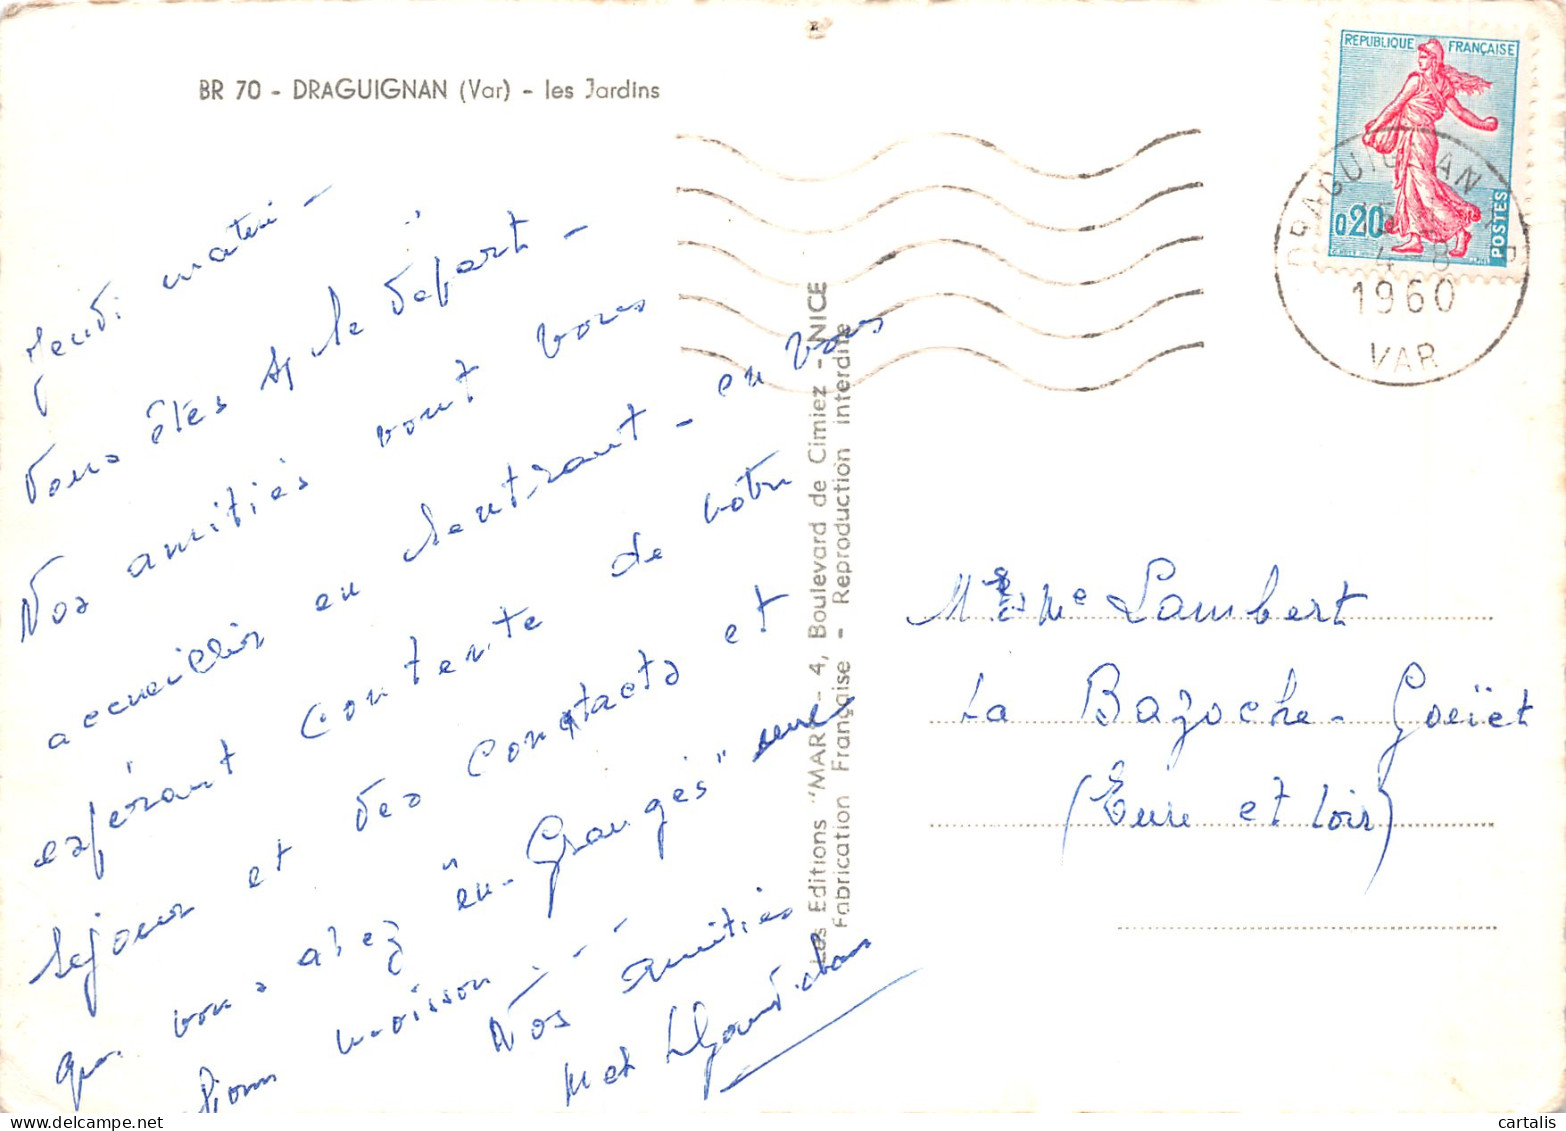 BR 70 - DRAGUIGNAN (Var) - les Jardins
REPUBLIQUE FRANÇAISE
0,20
POSTES
DRAGUIGNAN
4-8
1960
VAR
Jeudi matin -
Vous êtes le départ -
Nos amitiés vont vous
accueillir en rentrant - en vous
espérant contente de votre
séjour et des contacts et
que vous avez "en-Granges"
moisson
Nos amitiés
M et
Les Editions "MARY" - 4, Boulevard de Cimiez - NICE
Fabrication Française - Reproduction interdite
Me Lambert
La Bazoche-Goeïet
(Eure et Loir)
cartalis